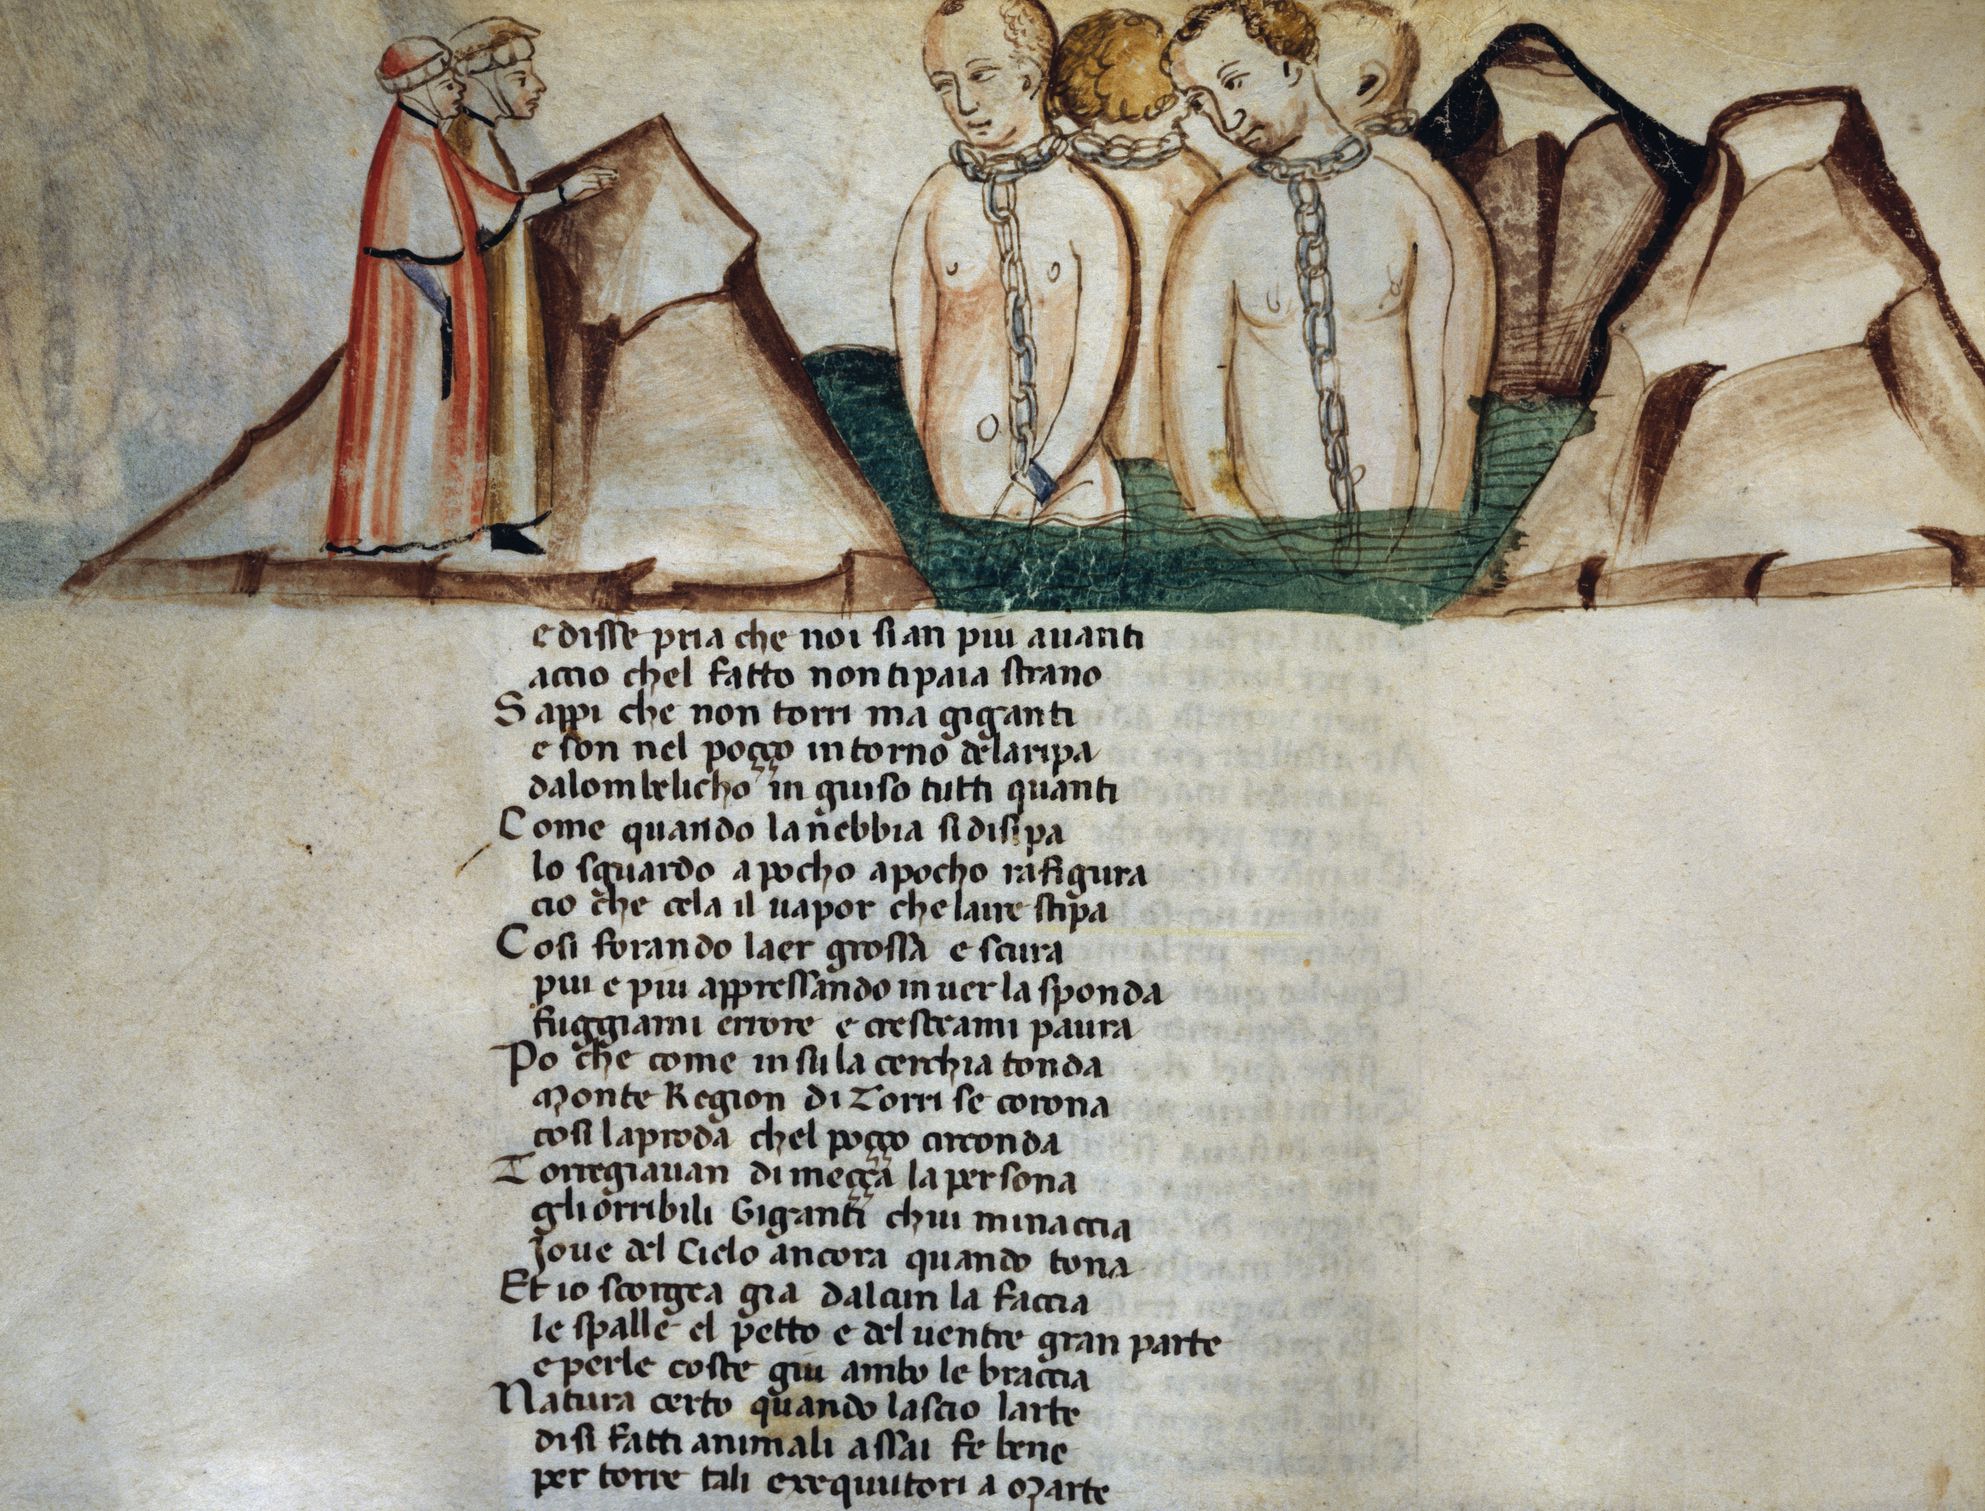 e disse pria che noi sian piu auanti
accio chel fatto non ti paia strano
Sappi che non torri ma giganti
e son nel poçço intorno de la ripa
da lombelicho in giuso tutti quanti
Come quando la nebbia si disipa
lo sguardo a pocho a pocho rafigura
cio che cela il uapor che laire stipa
Cosi forando laer grossa e scura
piu e piu appressando inuer la sponda
fuggiami errore e cresceami paura
Po che come in su la cerchia tonda
Monte Region di Torri se corona
cosi la proda chel poçço circonda
Torregiauan di meçça la persona
gli orribili Giganti chui minaccia
Joue del Cielo ancora quando tona
Et io scorgea gia dalcun la faccia
le spalle el petto e del uentre gran parte
e per le coste giu ambo le braccia
Natura certo quando lascio larte
di si fatti animali assai fe bene
per torre tali exequutori a Marte